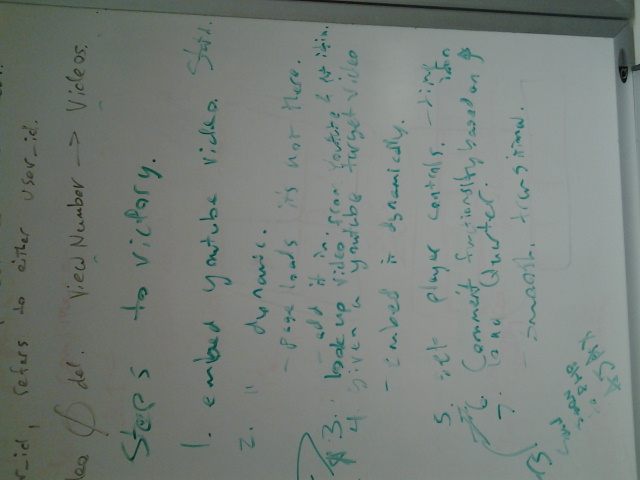 refers to either user_id.
del. View Number → Videos.
Steps to victory.
1. embed youtube video.
2. " dynamic.
- page loads it's not there.
- add it in.
3. look up video from youtube & put it in.
4 given a youtube target video
- embed it dynamically.
5. set player controls. - time
6. Comment functionality based on
7. load Quarter.
- smooth transitional.
AJAX